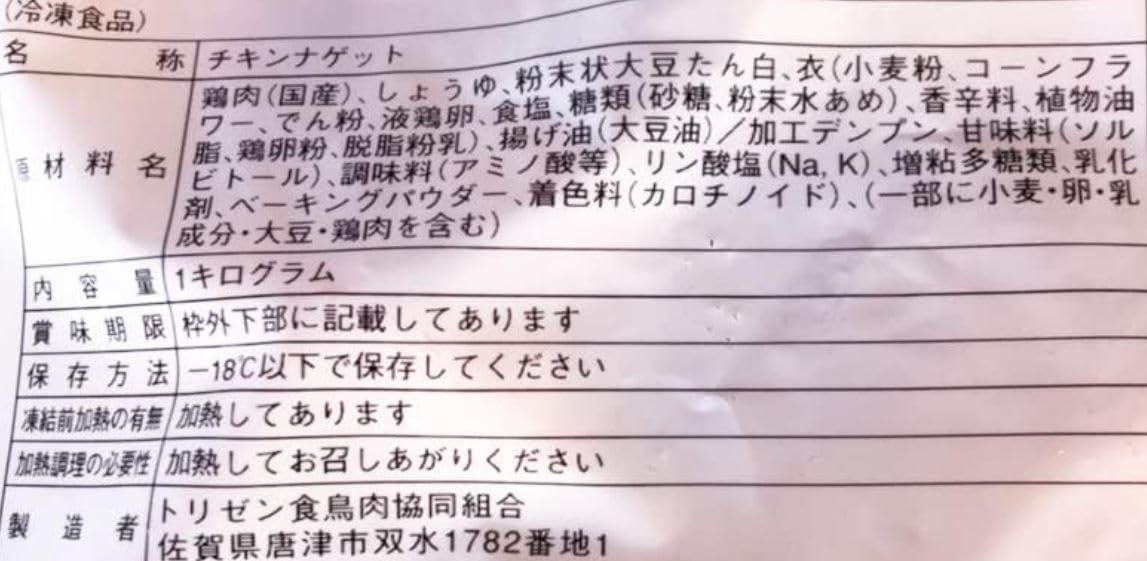 (冷凍食品)
名称 チキンナゲット
原材料名 鶏肉(国産)、しょうゆ、粉末状大豆たん白、衣(小麦粉、コーンフラ
ワー、でん粉、液鶏卵、食塩、糖類(砂糖、粉末水あめ)、香辛料、植物油
脂、鶏卵粉、脱脂粉乳)、揚げ油(大豆油)/加工デンプン、甘味料(ソル
ビトール)、調味料(アミノ酸等)、リン酸塩(Na, K)、増粘多糖類、乳化
剤、ベーキングパウダー、着色料(カロチノイド)、(一部に小麦・卵・乳
成分・大豆・鶏肉を含む)
内容量 1キログラム
賞味期限 枠外下部に記載してあります
保存方法 −18℃以下で保存してください
凍結前加熱の有無 加熱してあります
加熱調理の必要性 加熱してお召しあがりください
製造者 トリゼン食鳥肉協同組合
佐賀県唐津市双水1782番地1